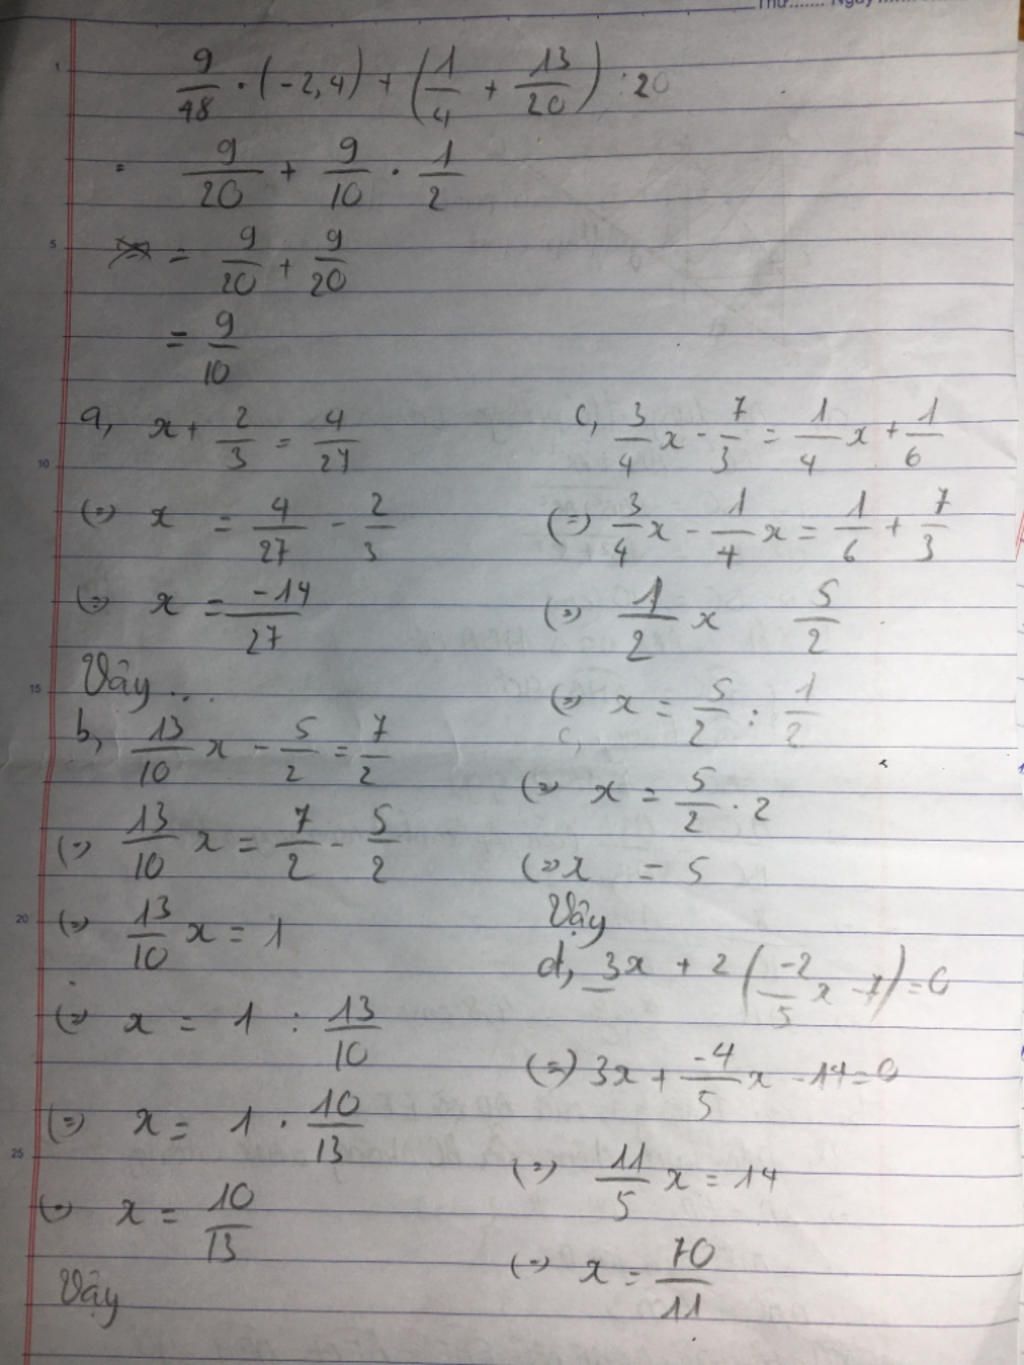 Thứ....... Ngày.......
9/48 . (-2,4) + (1/4 + 13/20) : 20
= 9/20 + 9/10 . 1/2
= 9/20 + 9/20
= 9/10
a, x + 2/3 = 4/27
(=) x = 4/27 - 2/3
(=) x = -14/27
Vậy...
b, 13/10 x - 5/2 = 7/2
(=) 13/10 x = 7/2 - 5/2
(=) 13/10 x = 1
(=) x = 1 : 13/10
(=) x = 1 . 10/13
(=) x = 10/13
Vậy
c, 3/4 x - 7/3 = 1/4 x + 1/6
(=) 3/4 x - 1/4 x = 1/6 + 7/3
(=) 1/2 x 5/2
(=) x = 5/2 : 1/2
(=) x = 5/2 . 2
(=) x = 5
Vậy
d, 3x + 2 (-2/5 x - 7) = 0
(=) 3x + -4/5 x - 14 = 0
(=) 11/5 x = 14
(=) x = 70/11